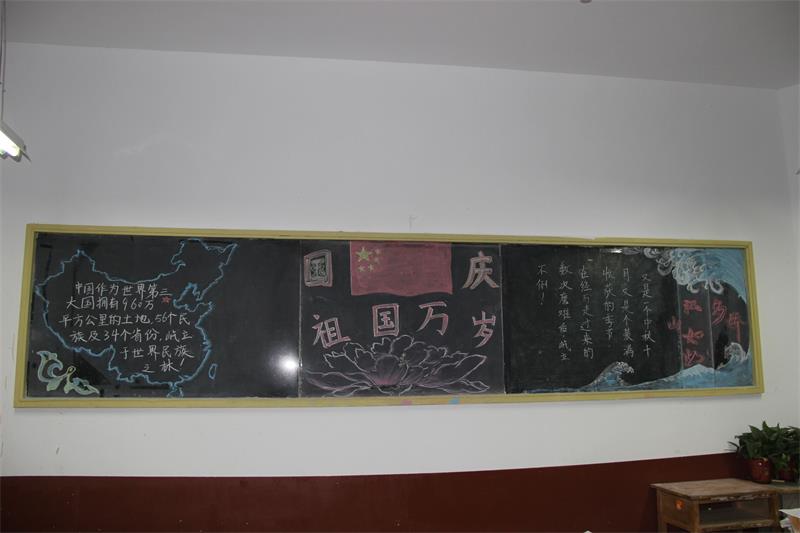 中国作为世界第三
大国拥有960万
平方公里的土地,56个民
族及34个省份,屹立
于世界民族
之林!
国庆
祖国万岁
又是一个中秋十
月又是一个美满
收获的季节
在经历走过来的
数次磨难后屹立
不倒!
江山如此
多娇